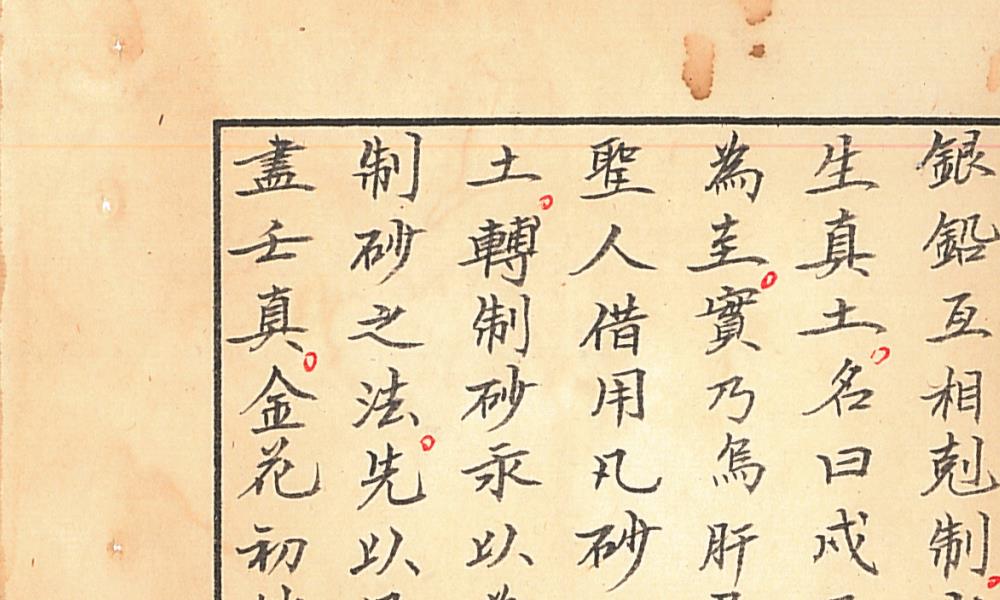 銀鉛互相剋制。
生真土。名曰戍
為圭。實乃烏肝
聖人借用凡砂
土。轉制砂汞以為
制砂之法。先以
盡壬真。金花初